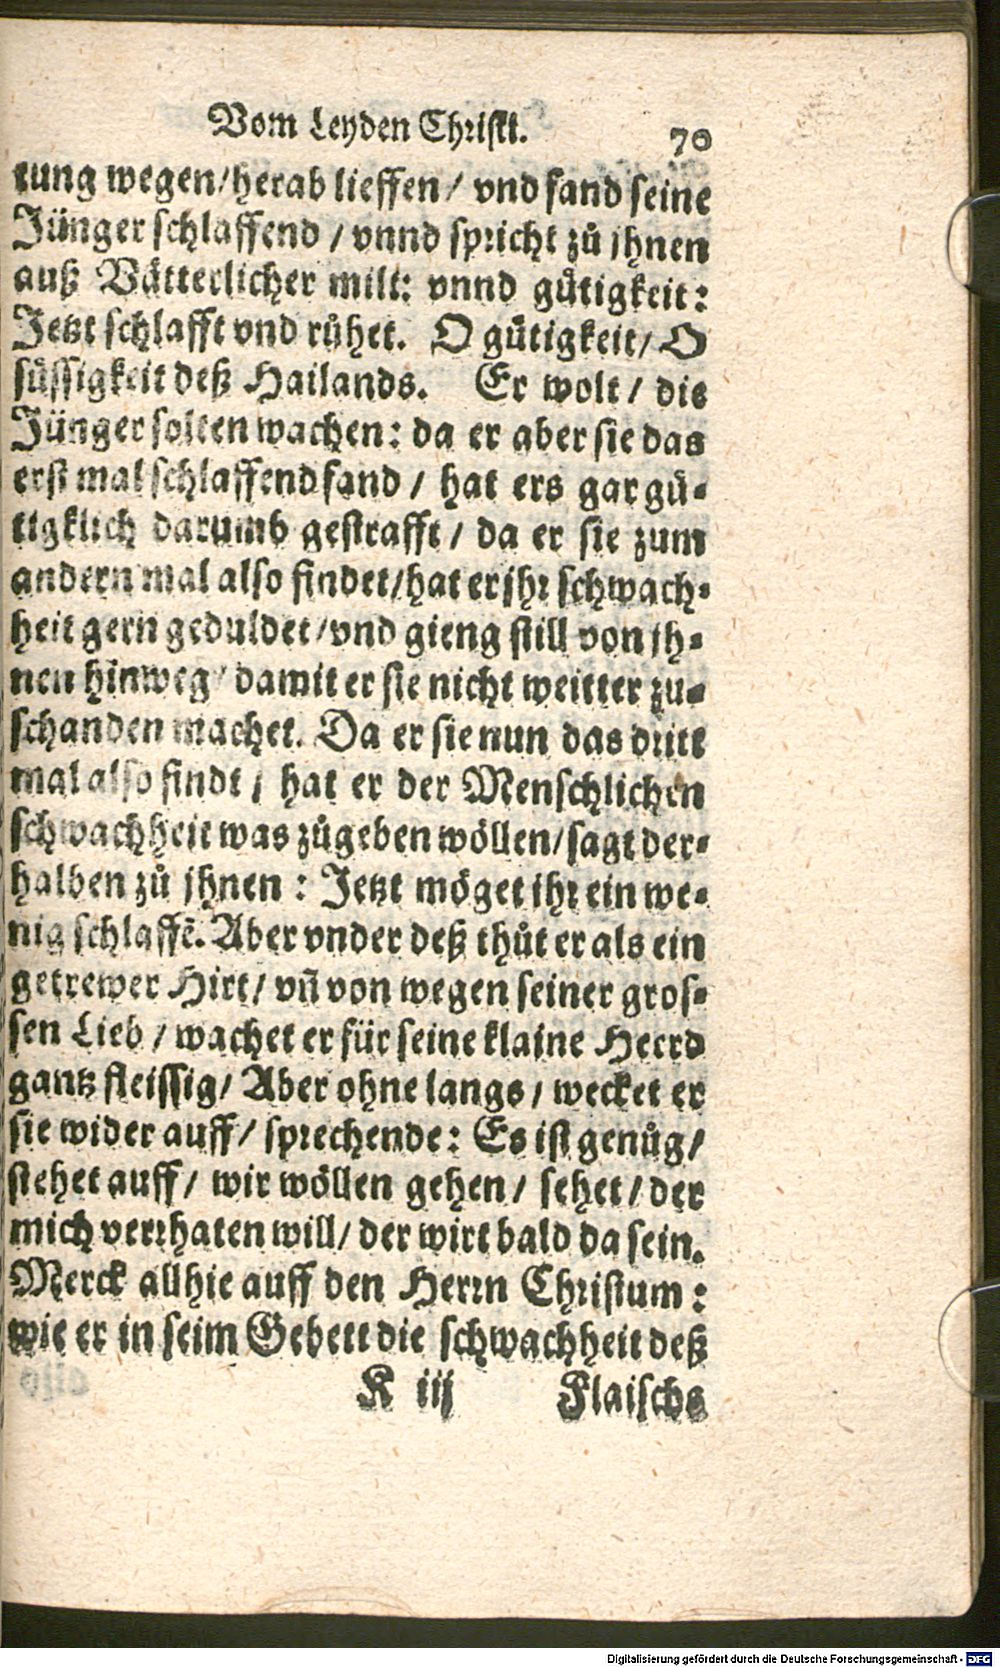 Vom Leyden Christi. 70
tung wegen/herab lieffen/ vnd fand seine
Jünger schlaffend / vnnd spricht zů jhnen
auß Vätterlicher milt: vnnd gütigkeit:
Jetzt schlafft vnd růhet. O gütigkeit/ O
süssigkeit deß Hailands. Er wolt / die
Jünger solten wachen: da er aber sie das
erst mal schlaffend fand / hat ers gar gü-
tigklich darumb gestrafft / da er sie zum
andern mal also findet/hat er jhr schwach-
heit gern geduldet/vnd gieng still von jh-
nen hinweg/ damit er sie nicht weitter zu-
schanden machet. Da er sie nun das dritt
mal also findt / hat er der Menschlichen
schwachheit was zůgeben wöllen/sagt der-
halben zů jhnen : Jetzt möget ihr ein we-
nig schlaffē. Aber vnder deß thůt er als ein
getrewer Hirt/ vñ von wegen seiner gros-
sen Lieb / wachet er für seine klaine Heerd
gantz fleissig/ Aber ohne langs / wecket er
sie wider auff/ sprechende: Es ist genůg/
stehet auff/ wir wöllen gehen/ sehet/ der
mich verrhaten will/ der wirt bald da sein.
Merck allhie auff den Herrn Christum :
wie er in seim Gebett die schwachheit deß
K iij Flaischs
Digitalisierung gefördert durch die Deutsche Forschungsgemeinschaft - DFG